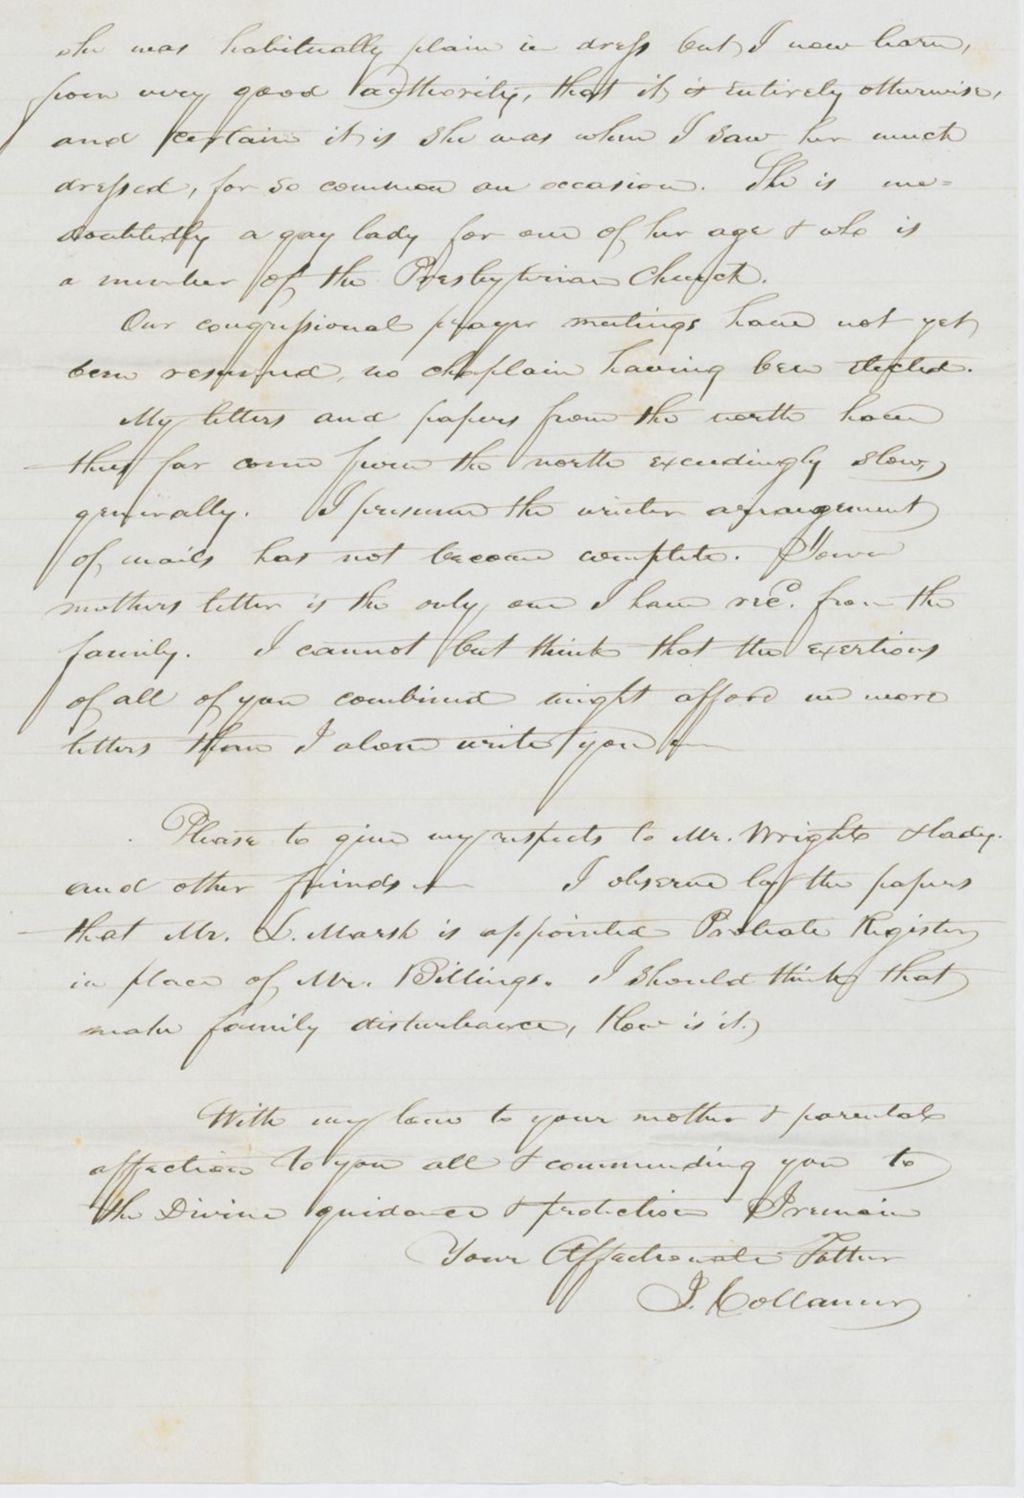 she was habitually plain in dress but, I now learn,
from very good authority, that it is entirely otherwise,
and certain it is she was when I saw her much
dressed, for so common an occasion. She is un=
doubtedly a gay lady for one of her age & who is
a member of the Presbyterian Church.
Our congressional prayer meetings have not yet
been resumed, no chaplain having been elected.
My letters and papers from the north have
thus far come from the north exceedingly slow,
generally. I presume the winter arrangement
of mails has not become complete. Your
mothers letter is the only one I have recd. from the
family. I cannot but think that the exertions
of all of you combined might afford me more
letters than I alone write you
Please to give my respects to Mr. Wright & lady.
and other friends I observe by the papers
that Mr. L. Marsh is appointed Probate Register
in place of Mr. Billings. I should think that
make family disturbance, How is it.
With my love to your mother & parental
affection to you all & commending you to
the Divine guidance & protection I remain
Your Affectionate Father
J. Collamer